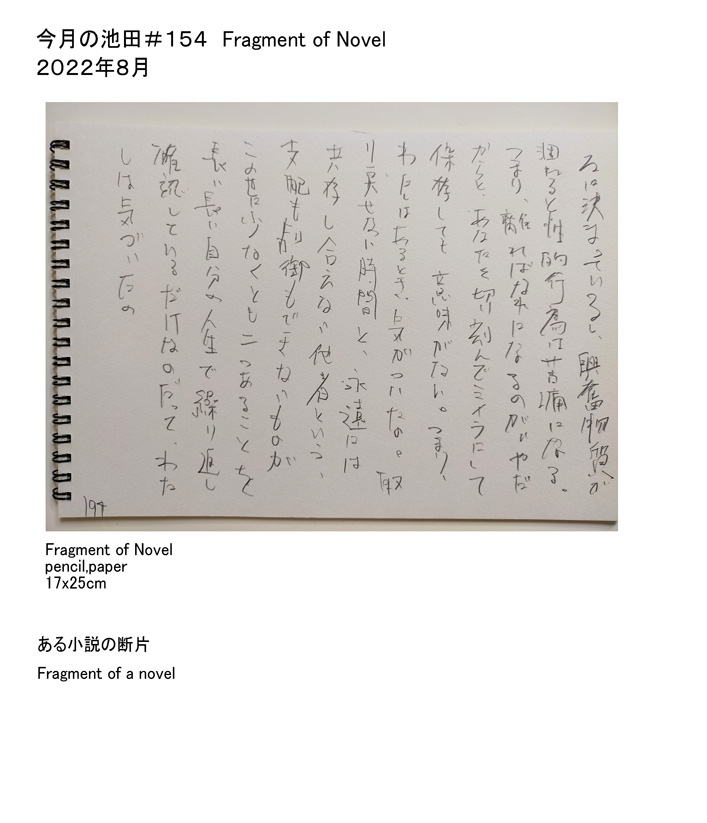 今月の池田＃154　Fragment of Novel
2022年8月
るに決まっているし、興奮物質が
涸れると性的行為は苦痛になる。
つまり、離ればなれになるのがいやだ
からと、あなたを切り刻んでミイラにして
保存しても意味がない。つまり、
わたしはあるとき気がついたの。取
り戻せない時間と、永遠には
共存し合えない他者という、
支配も制御もできないものが
この世に少なくとも二つあることを
長い長い自分の人生で繰り返し
確認しているだけなのだって、わた
しは気づいたの
194
Fragment of Novel
pencil,paper
17x25cm
ある小説の断片
Fragment of a novel